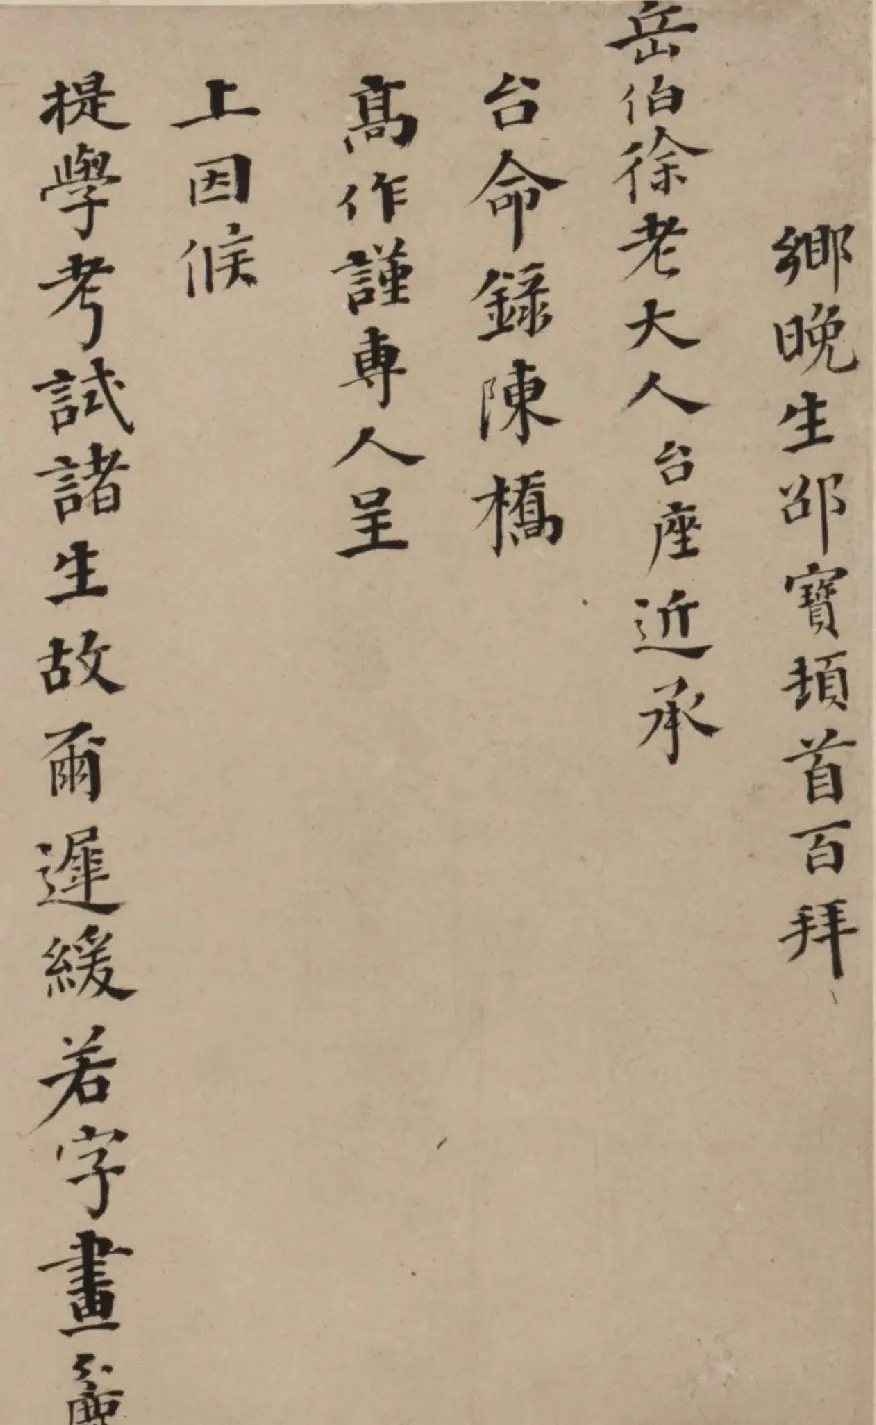 鄉晚生邵寶頓首百拜
岳伯徐老大人台座近承
台命錄陳橋
高作謹專人呈
上因候
提學考試諸生故爾遲緩若字畫